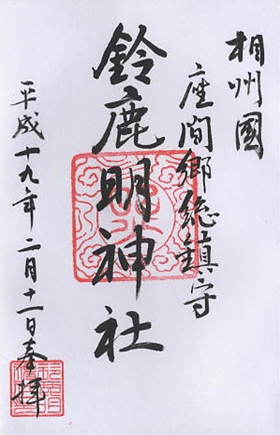 相州國
座間郷総鎮守
鈴鹿明神社
平成十九年二月十一日奉拝